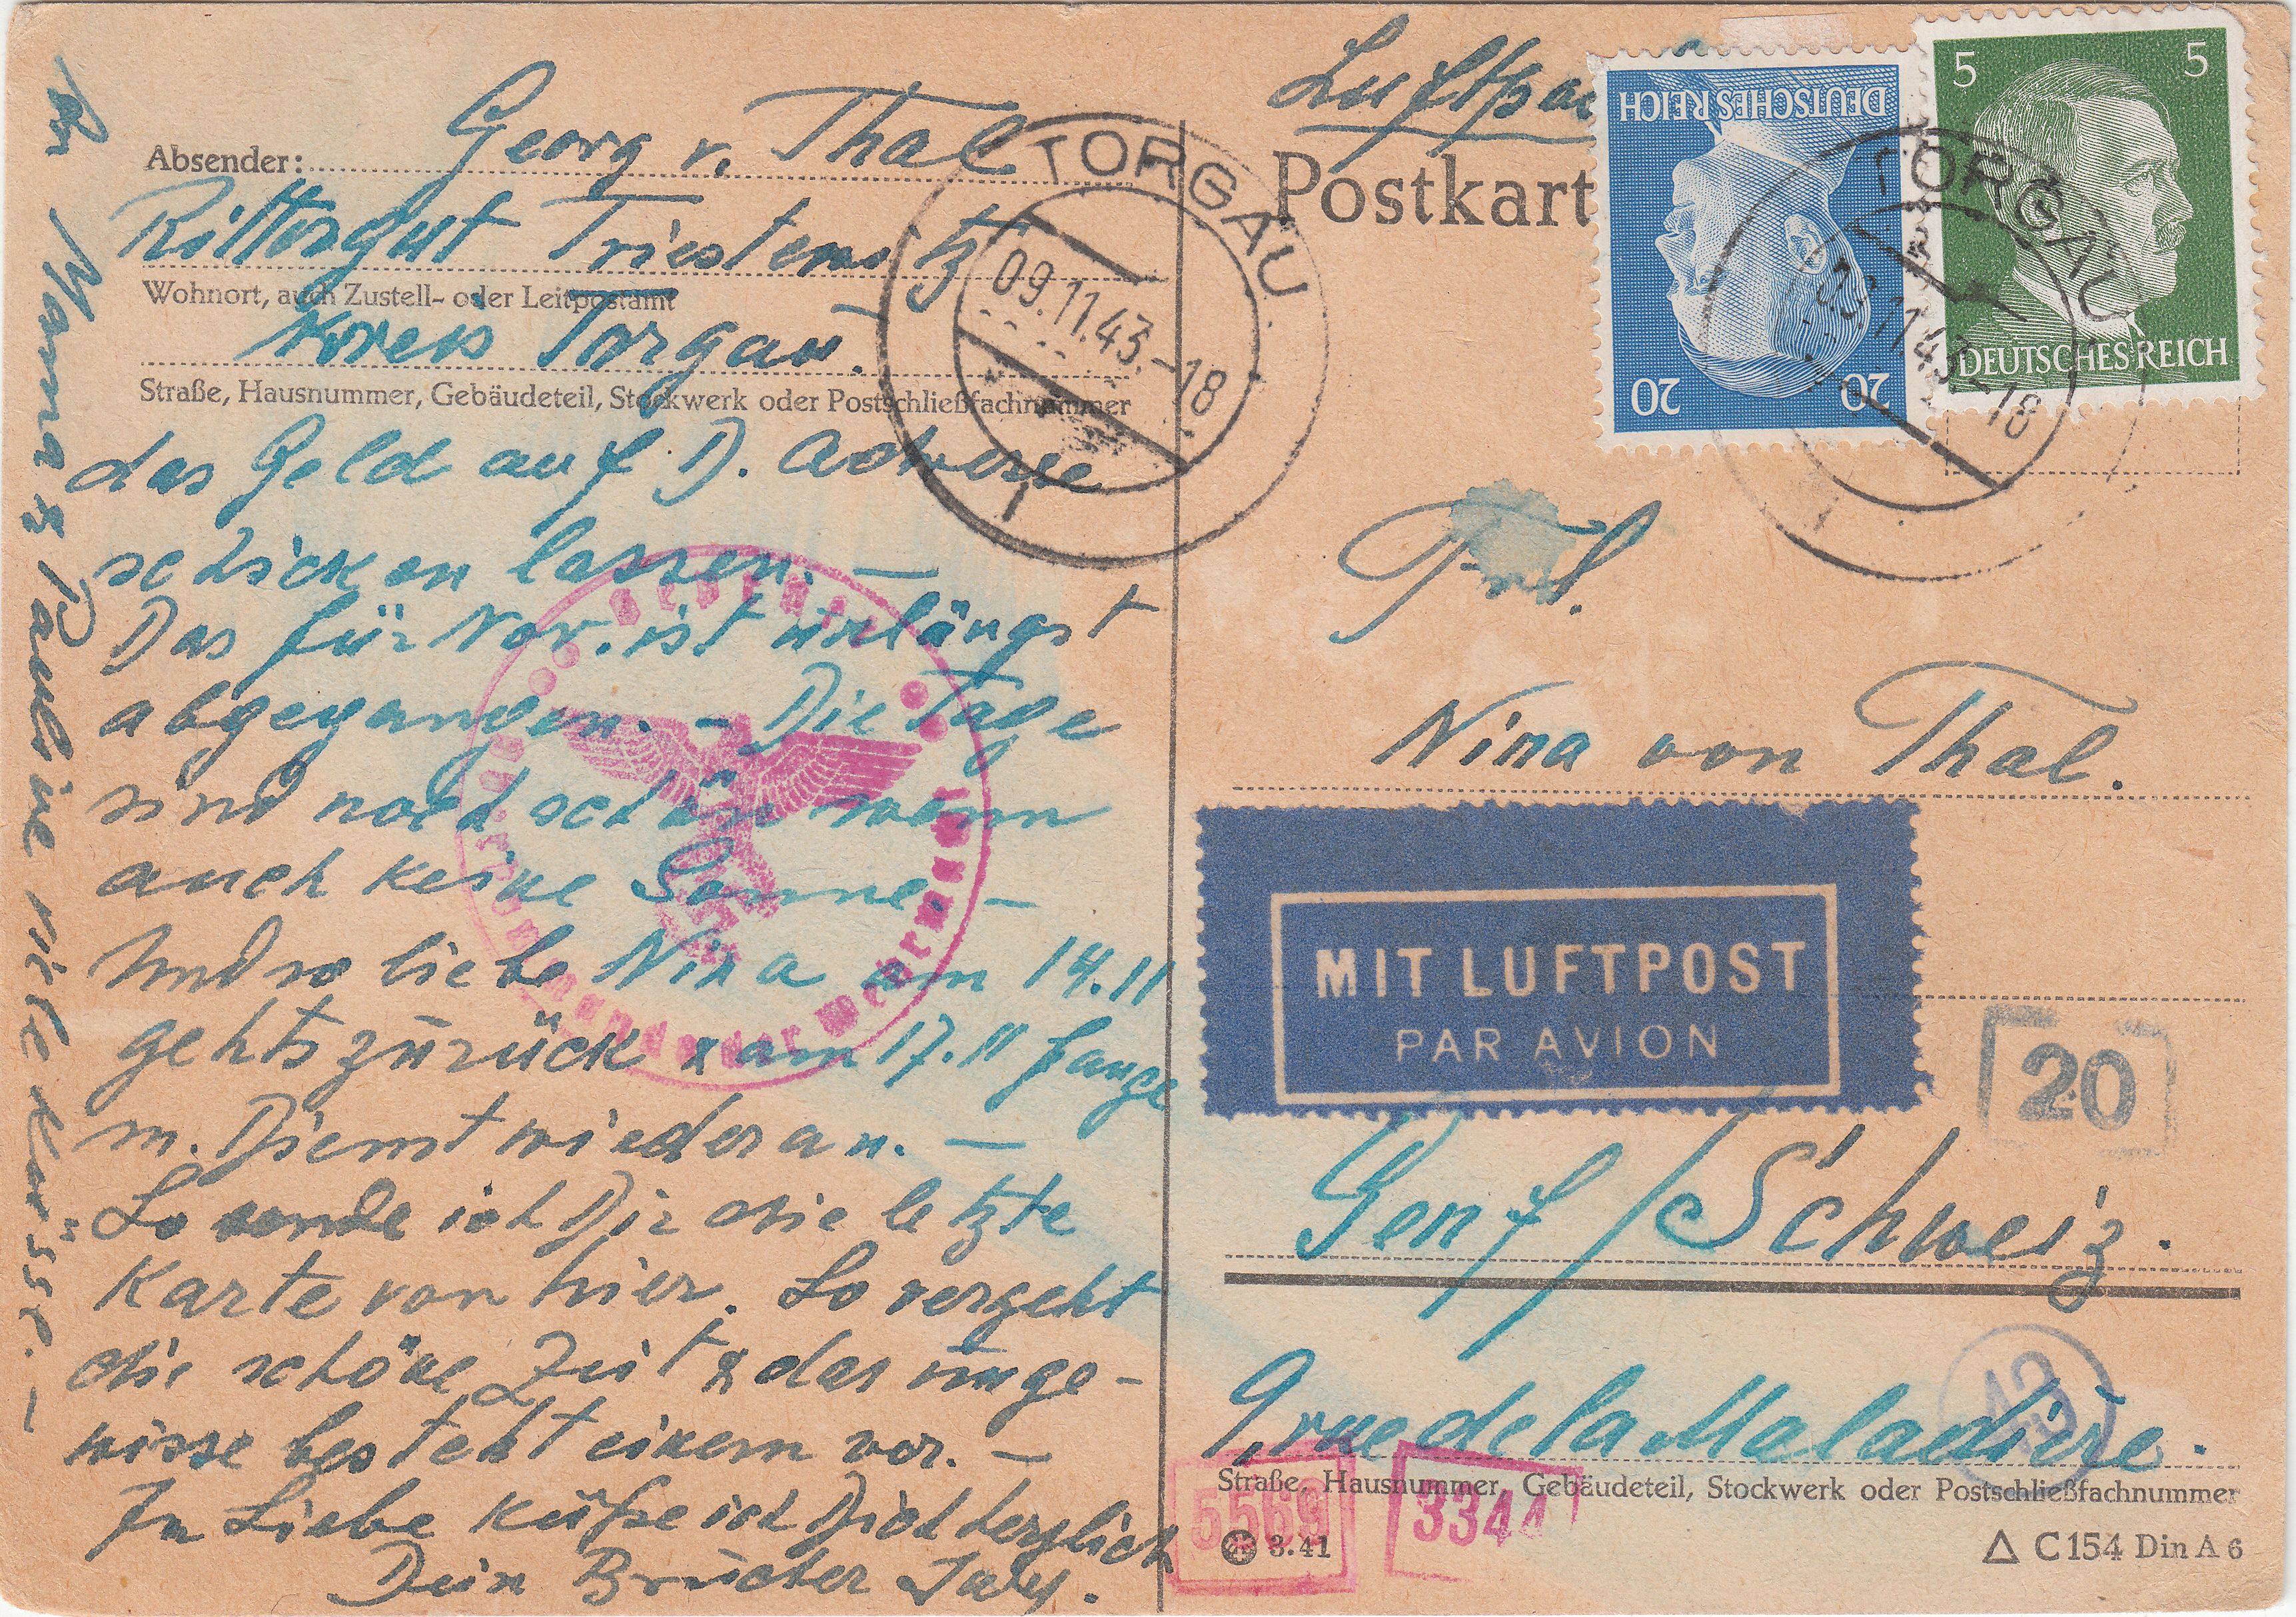 Luftpo
Georg v. Thal
Absender:
Rittergut Triestewitz
Wohnort, auch Zustell- oder Leitpostamt
Kreis Torgau.
Straße, Hausnummer, Gebäudeteil, Stockwerk oder Postschließfachnummer
das Geld auf D. Adresse
schicken lassen. —
Das für Nov. ist unlängst
abgegangen. – Die Tage
sind noch schön wenn
auch keine Sonne. –
Und so liebe Nina am 14.11
gehts zurück & am 17.11 fange
m. Dienst wieder an. —
So sende ich Dir die letzte
Karte von hier. So vergeht
die schöne Zeit & das unge-
wisse besteht einem vor. –
In Liebe küße ich Dich herzlich
Dein Bruder
Mama & Pauline viele Küsse. —
TORGAU
09.11.43.-18
Geprüft
Oberkommando der Wehrmacht
Postkart
DEUTSCHES REICH
20 20
5 5
DEUTSCHES REICH
TORGAU
09.11.43.-18
Frl.
Nina von Thal.
MIT LUFTPOST
PAR AVION
20
Genf / Schweiz.
43
9, rue de la Maladière.
Straße, Hausnummer, Gebäudeteil, Stockwerk oder Postschließfachnummer
5569
3344
3.41
C 154 Din A 6